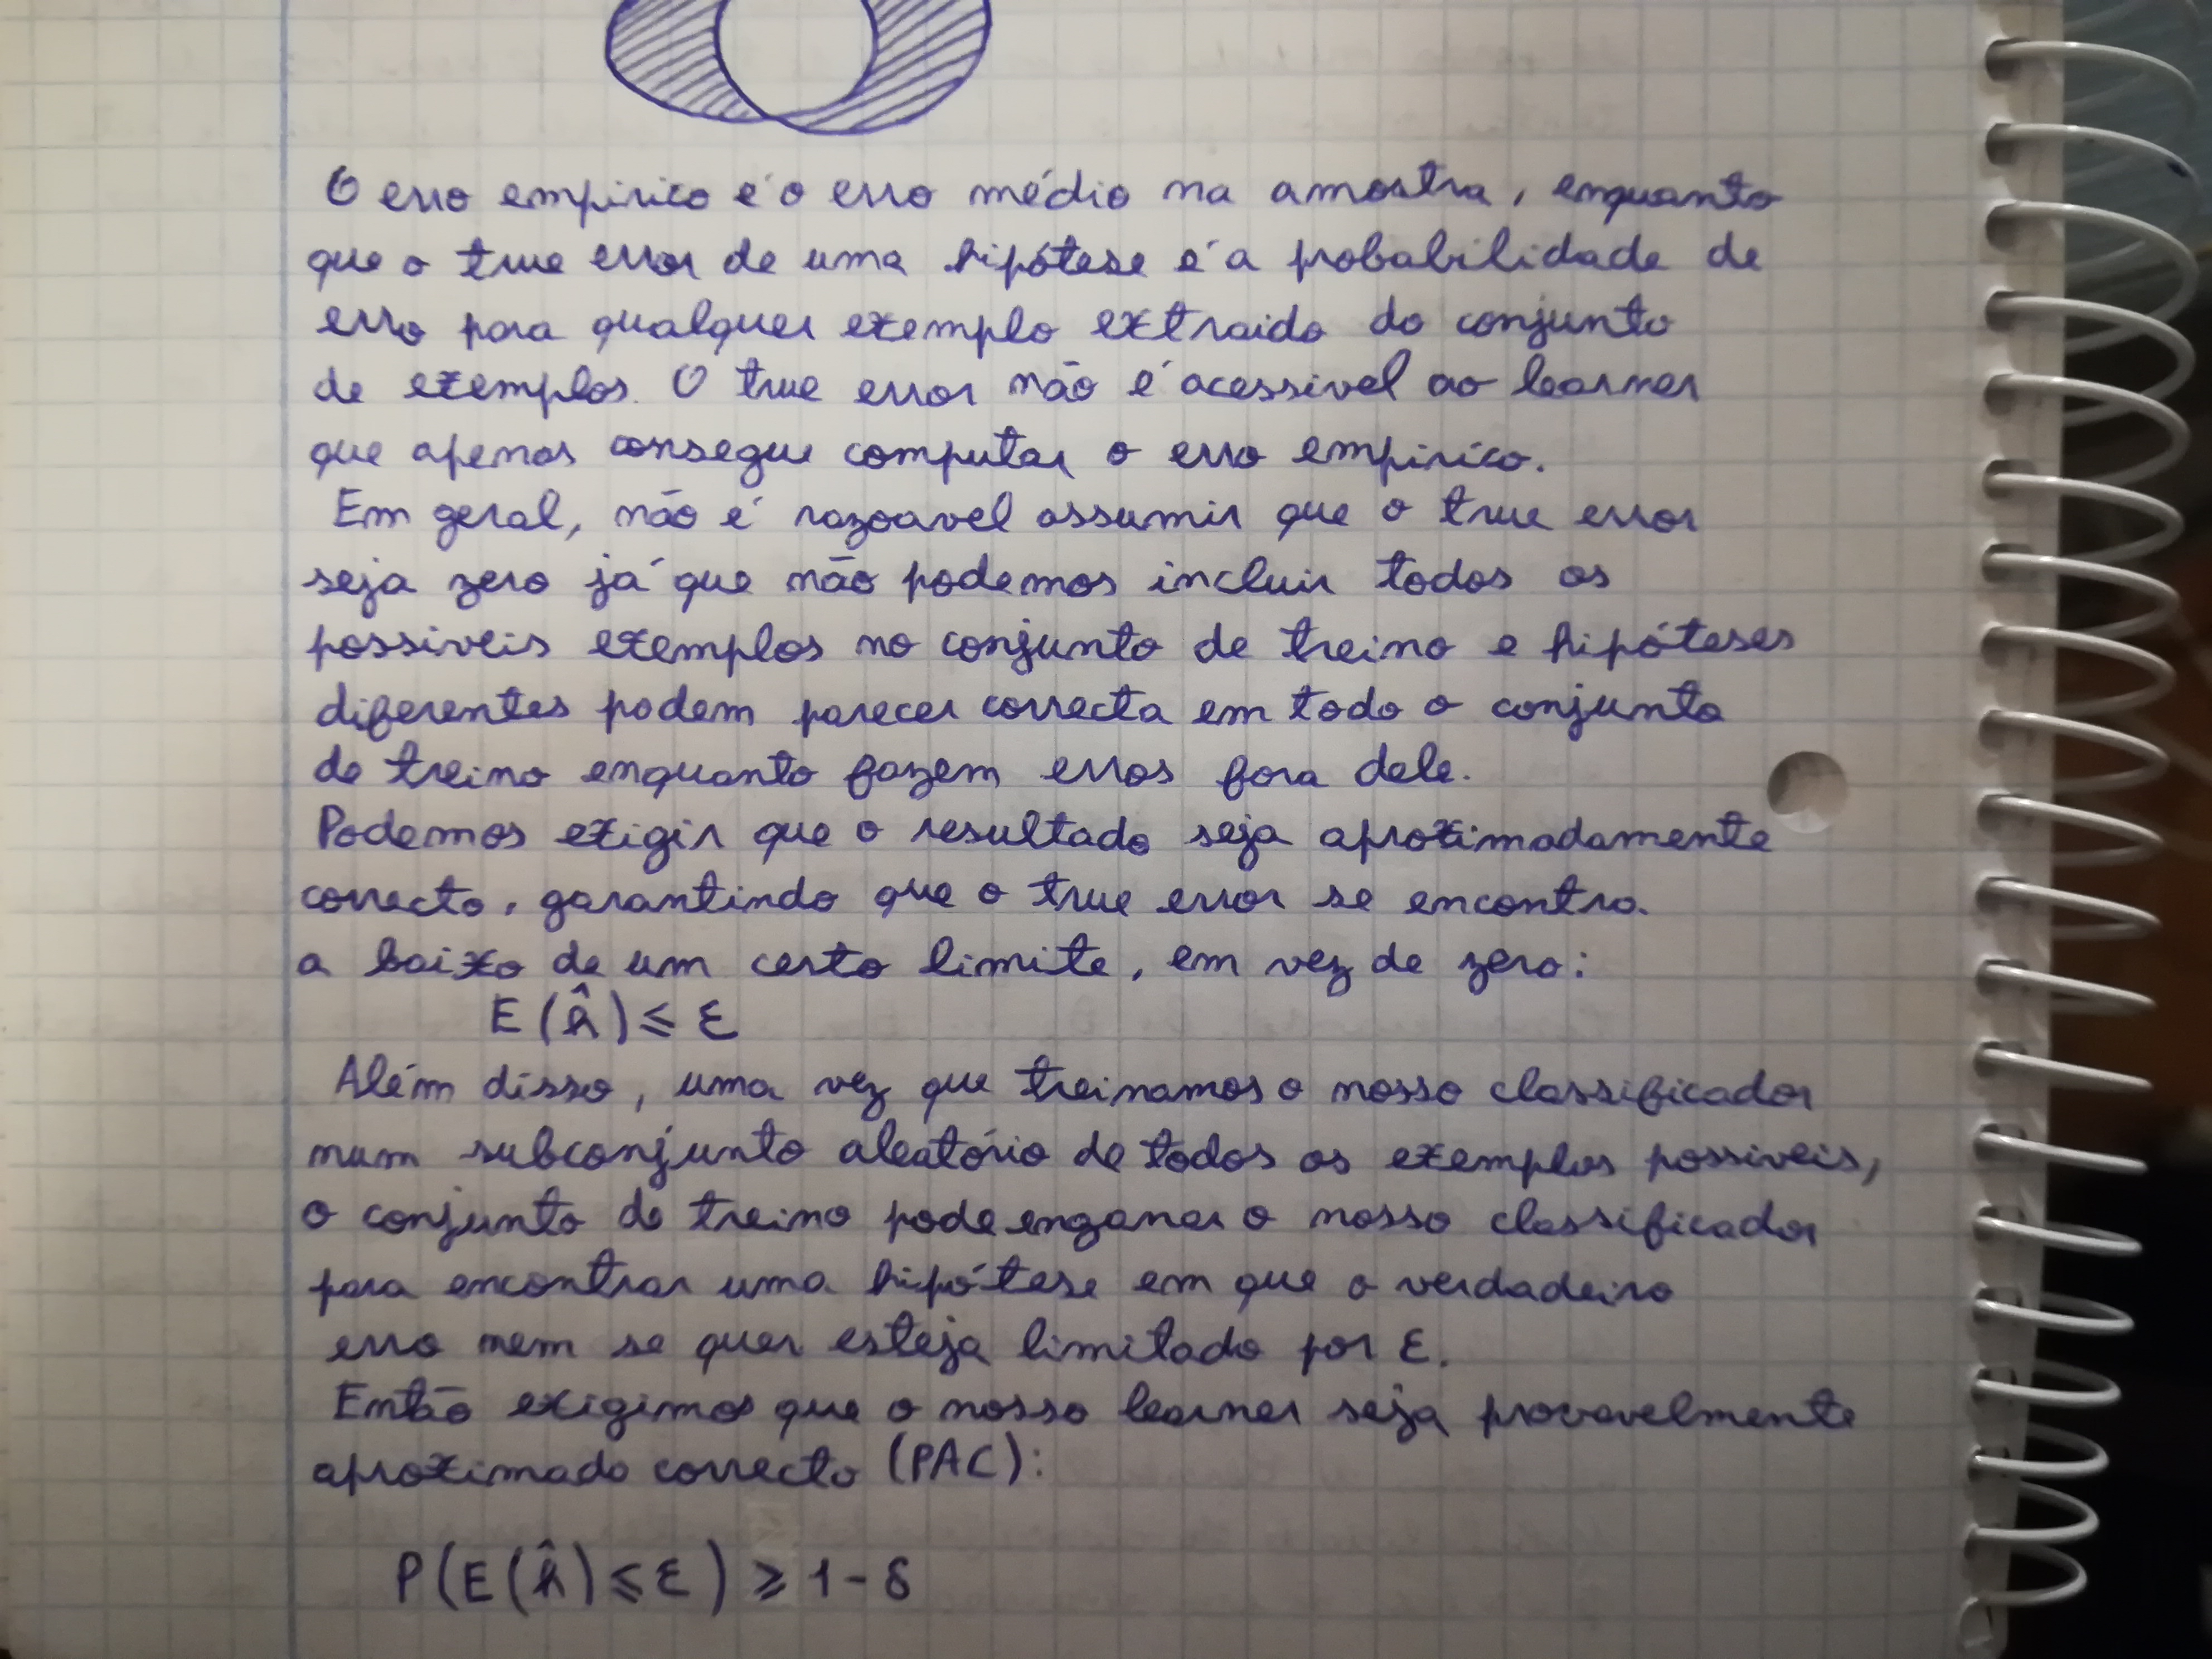 O erro empirico é o erro médio na amostra, enquanto
que o true error de uma hipótese é a probabilidade de
erro para qualquer exemplo extraido do conjunto
de exemplos. O true error não é acessivel ao learner
que apenas consegue computar o erro empírico.
Em geral, não é razoavel assumir que o true error
seja zero já que não podemos incluir todos os
possiveis exemplos no conjunto de treino e hipóteses
diferentes podem parecer correcta em todo o conjunto
de treino enquanto fazem erros fora dele.
Podemos exigir que o resultado seja aproximadamente
correcto, garantindo que o true error se encontra
a baixo de um certo limite, em vez de zero:
E(ĥ) ⩽ ε
Além disso, uma vez que treinamos o nosso classificador
num subconjunto aleatório de todos os exemplos possiveis,
o conjunto de treino pode enganar o nosso classificador
para encontrar uma hipótese em que o verdadeiro
erro nem se quer esteja limitado por ε.
Então exigimos que o nosso learner seja provavelmente
aproximado correcto (PAC):
P(E(ĥ) ⩽ ε) ⩾ 1 - δ